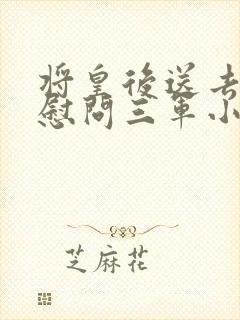 将皇後送去
慰問三軍小
芝麻花